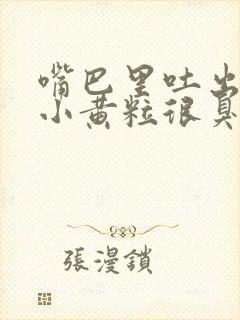 嘴巴里吐出
小黄粒很臭
張漫鎖